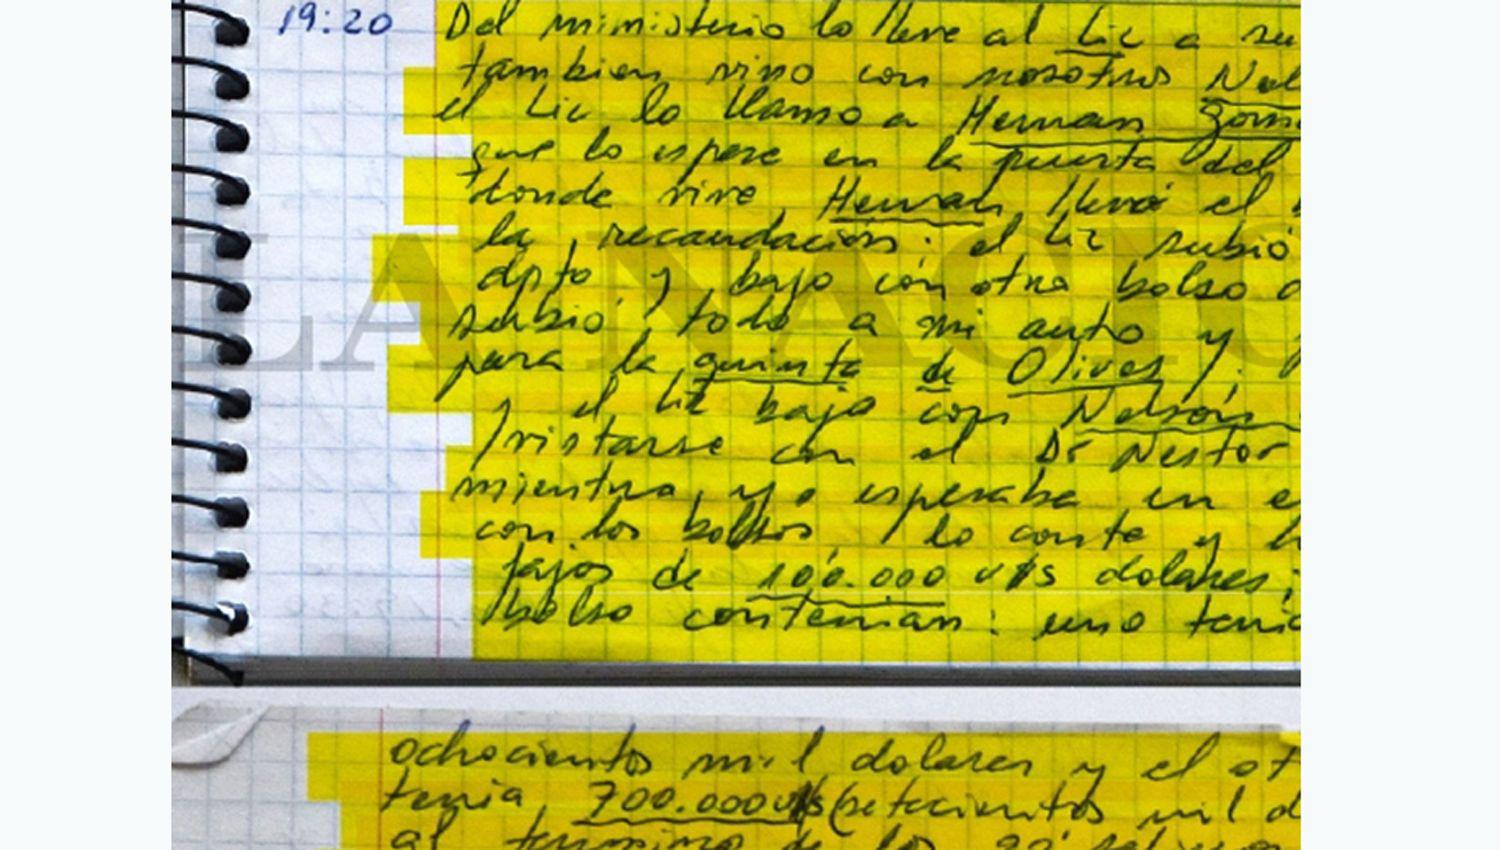 19:20 Del ministerio lo lleve al Lic a su
tambien vino con nosotros Nel
el Lic lo llamo a Hernan Gom
que lo espere en la puerta del
donde vive, Hernan llevó el
la recaudación: el Lic subió
dpto y bajo con otro bolso
subió todo a mi auto y
para la quinta de Olivos
y el Lic bajo con Nelson
con el Dr Nestor
mientras yo esperaba en e
con los bolsos, lo conte y h
fajos de 100.000 u$s dolares;
bolso contenian: uno tenia
ochocientos mil dolares y el ot
tenia 700.000 u$s (setecientos mil d
al termino de los
LA NACIO